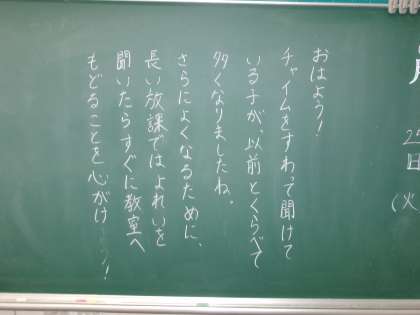 おはよう！
チャイムをすわって聞けて
いる子が、以前とくらべて
多くなりましたね。
さらによくなるために、
長い放課ではよれいを
聞いたらすぐに教室へ
もどることを心がけ！
日
(火